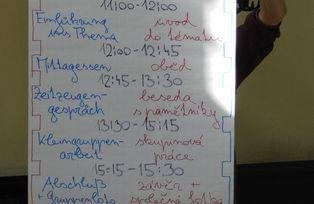 11:00-12:00
Einführung úvod
ins Thema do tématu
12:00-12:45
Mittagessen oběd
12:45-13:30
Zeitzeugen- beseda
gespräch s pamětníky
13:30-15:15
Kleingruppen- skupinová
arbeit práce
15:15-15:30
Abschluß závěr +
+ Gruppenfoto společná fotka